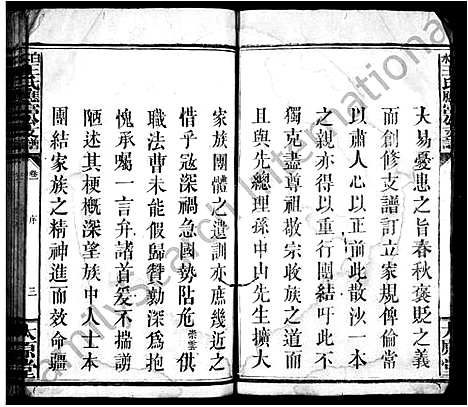 大易憂患之旨春秋褒貶之義
而創修支譜訂立家規俾倫常
以肅人心以正前此散沙一本
之親亦得以重行團結吁此不
獨克盡尊祖敬宗收族之大端
且與先總理孫中山先生擴大
家族團體之遺訓亦庶幾近之
惜乎寇深禍急國勢阽危崇雲供
職法曹未能假歸贊勷深爲抱
愧承囑一言弁諸首爰不揣謭
陋述其梗概深望族中人士本
團結家族之精神進而效命疆
卷
序
三
太原堂